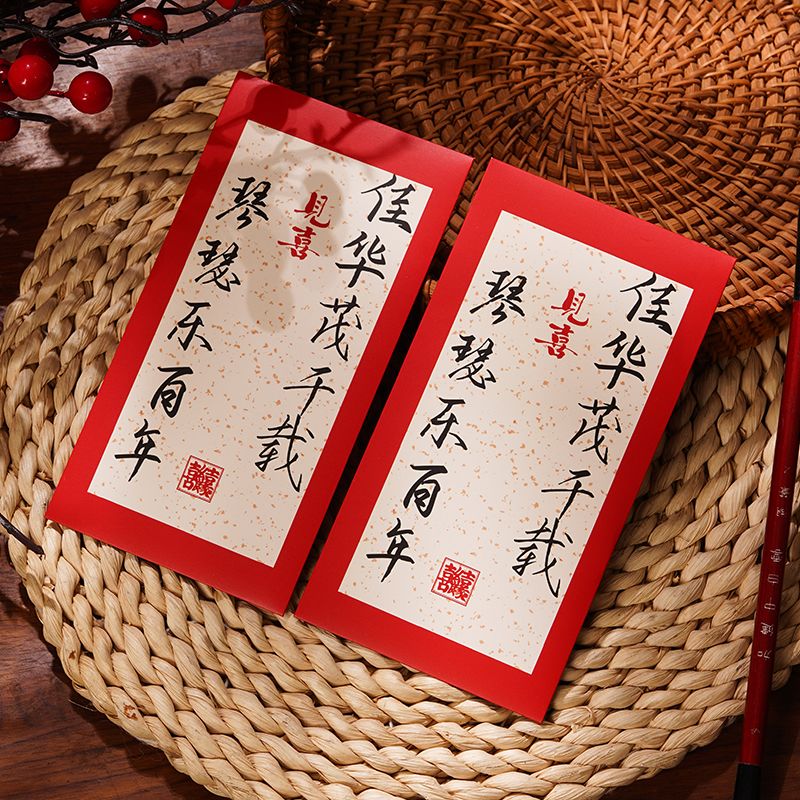 佳华茂千载
見喜
琴瑟乐百年
佳华茂千载
見喜
琴瑟乐百年